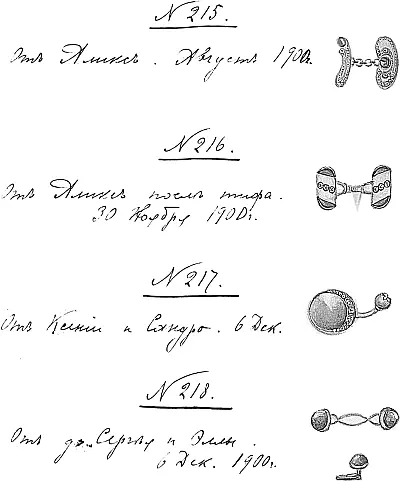 N 215.
Отъ Аликсъ. Августъ 1900г.
N 216.
Отъ Аликсъ послѣ тифа.
30 Ноября 1900г.
N 217.
Отъ Ксеніи и Сандро. 6 Дек.
N 218.
Отъ д. Сергѣя и Эллы.
6 Дек. 1900г.